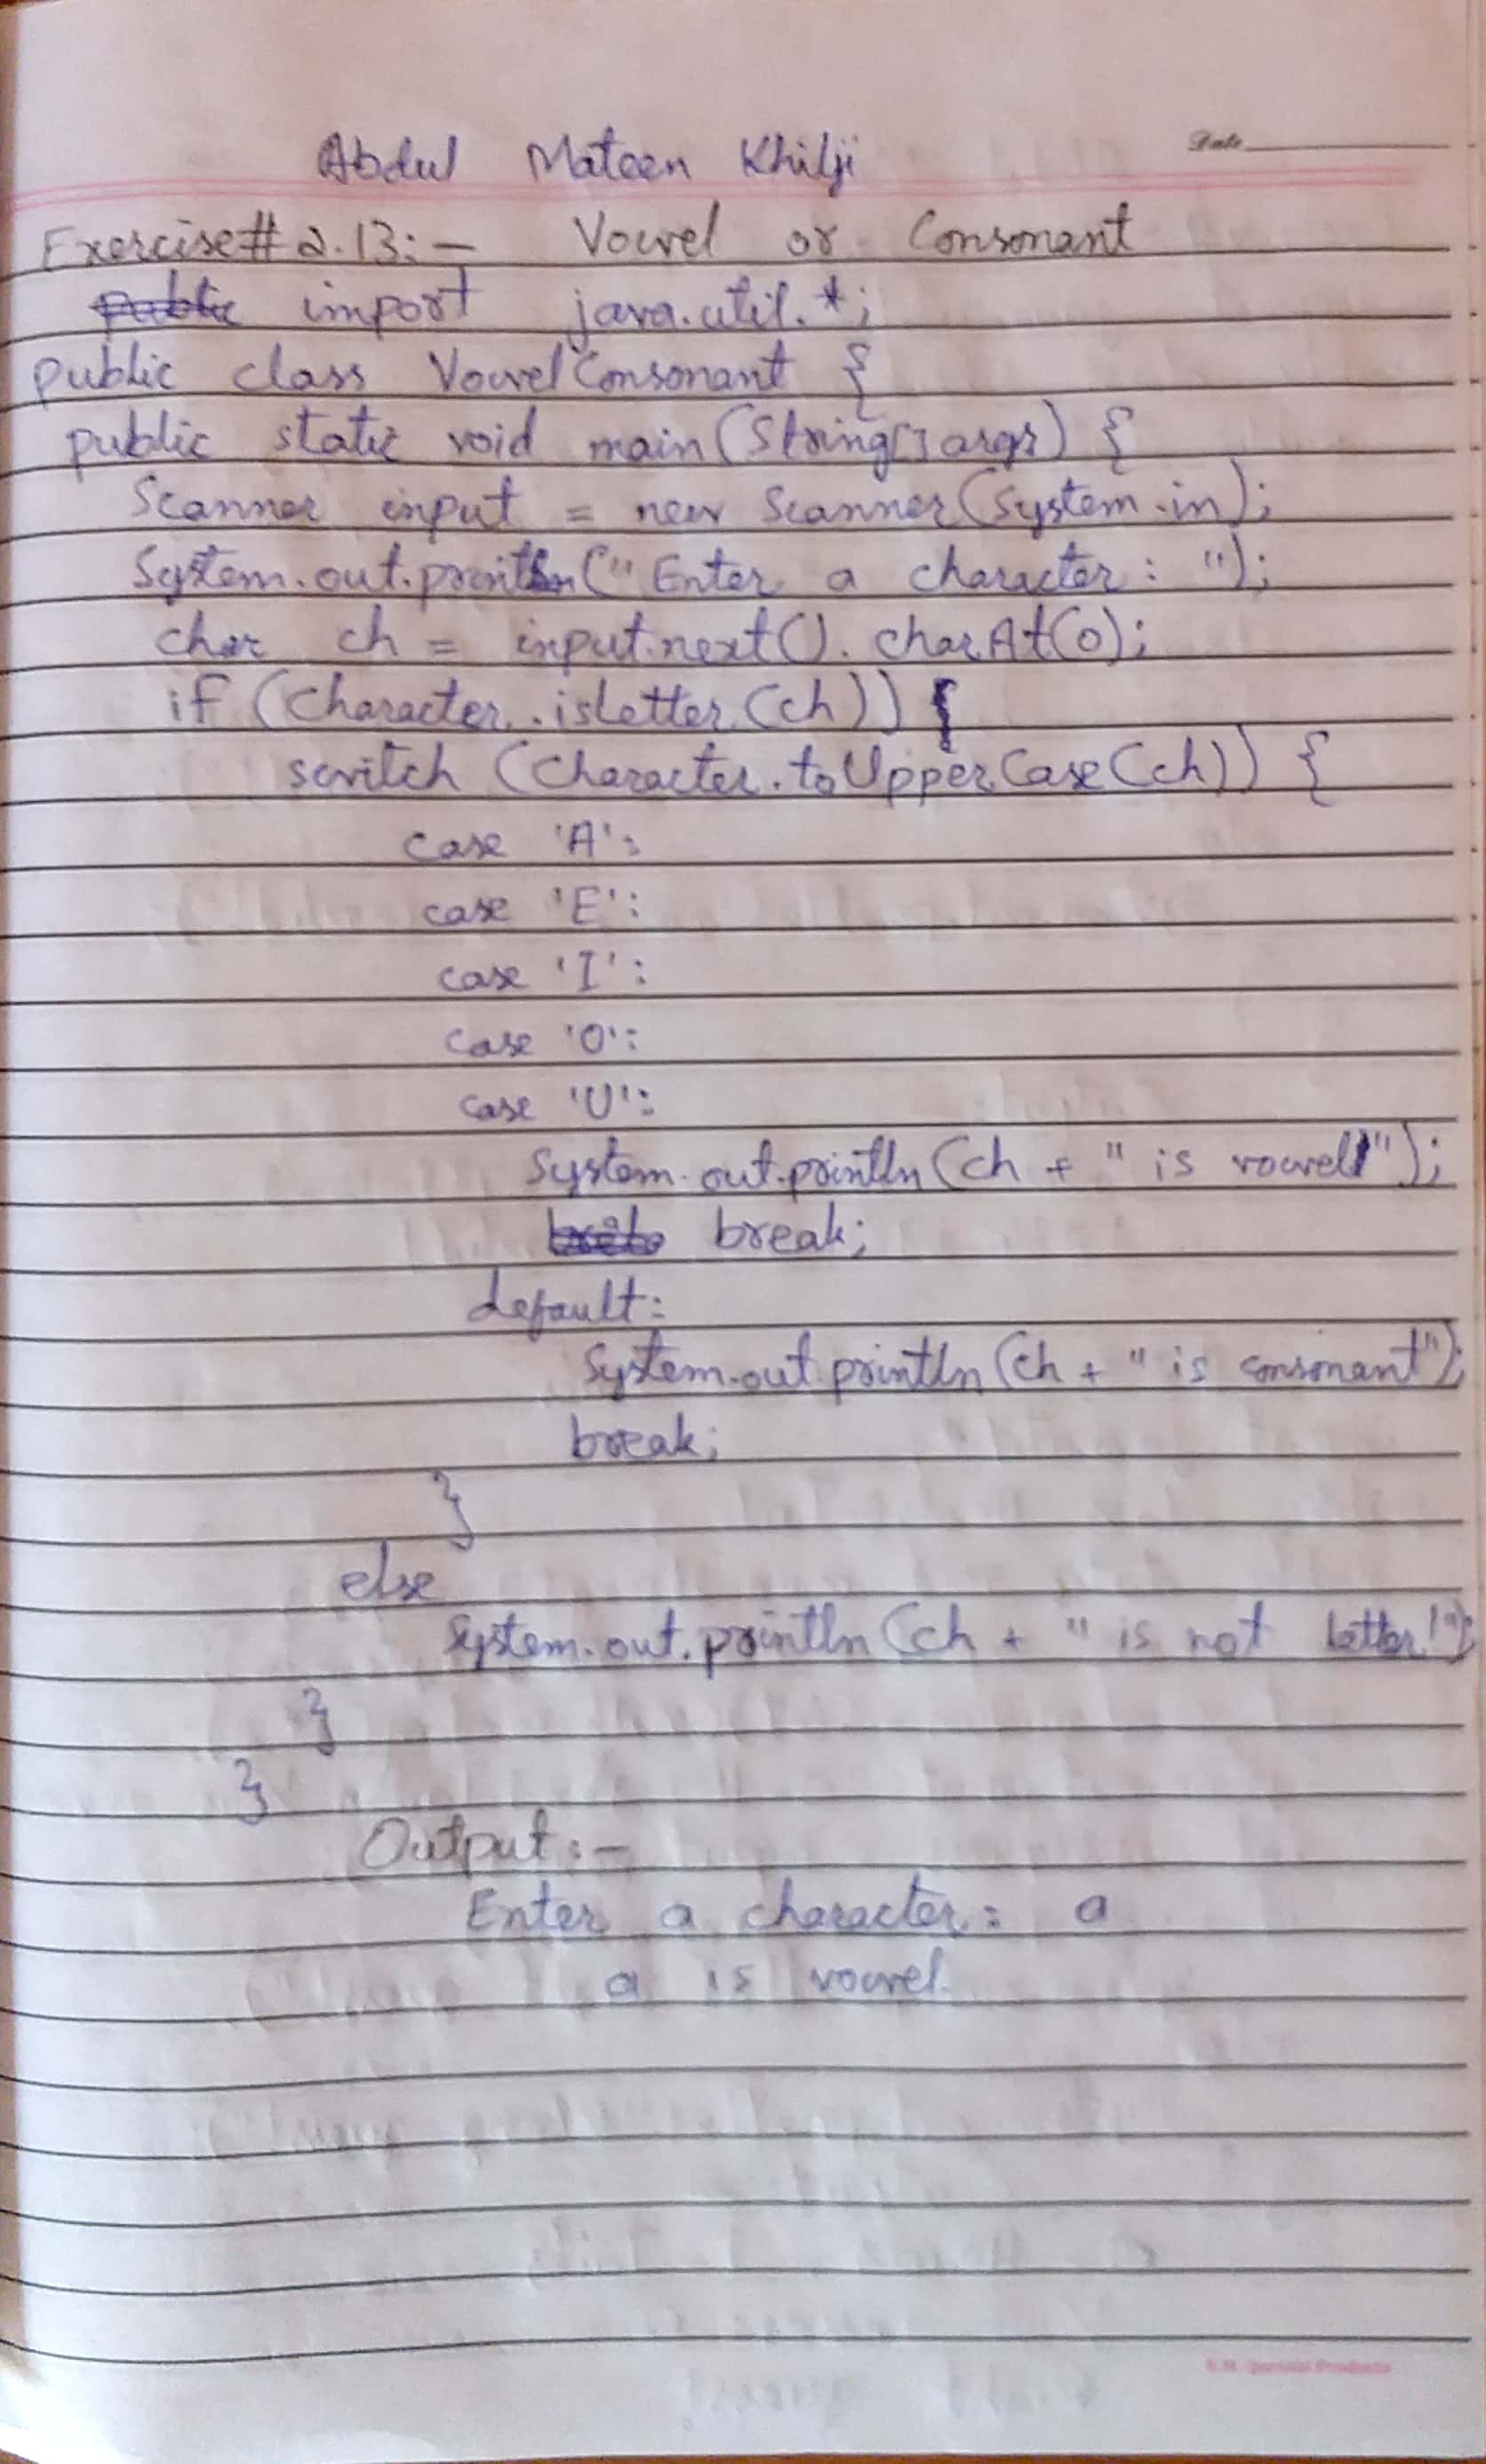 Abdul Mateen Khilji
Date
Exercise# 2.13:- Vowel or Consonant
public import java.util.*;
public class VowelConsonant {
public static void main(String[] args) {
Scanner input = new Scanner(System.in);
System.out.println("Enter a character: ");
char ch = input.next().charAt(0);
if (Character.isLetter(ch)) {
switch (Character.toUpperCase(ch)) {
case 'A':
case 'E':
case 'I':
case 'O':
case 'U':
System.out.println(ch + " is vowel");
break;
default:
System.out.println(ch + " is consonant");
break;
}
else
System.out.println(ch + " is not letter!");
}
}
Output:-
Enter a character: a
a is vowel.